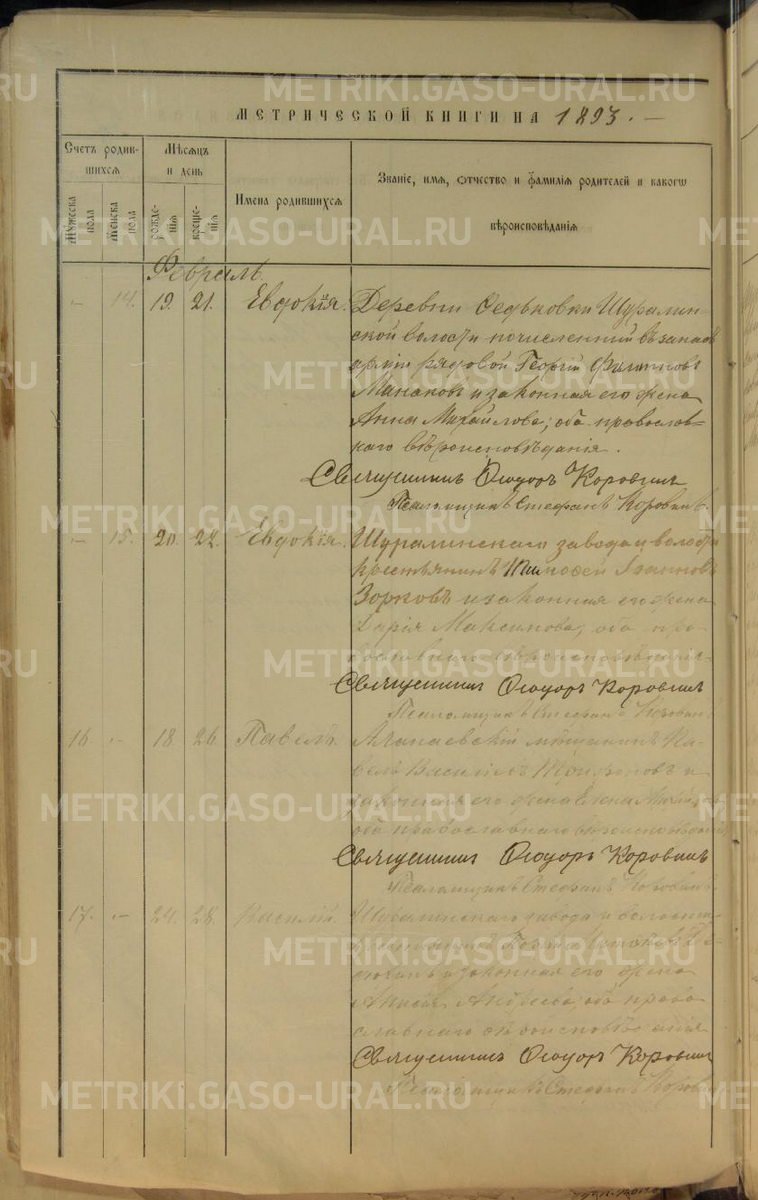 МЕТРИЧЕСКОЙ КНИГИ НА 1893. —
Счетъ родив-
шихся
Мѣсяцъ
и день
Имена родившихся
Званіе, имя, отчество и фамилія родителей и какогѡ
вѣроисповѣданія
Мужеска
пола
Женска
пола
рожде-
нія
креще-
нія
Февраль.
- 14. 19. 21. Евдокія. Деревни Федьковки Шуралин-
ской волости почисленный въ запасъ
арміи рядовой Георгій Филиповъ
Манаковъ и законная его жена
Анна Михайлова, оба православ-
наго вѣроисповѣданія.
Священникъ Ѳеодоръ Коровинъ
Псаломщикъ Стефанъ Коровинъ.
- 15. 20. 22. Евдокія. Шуралинскаго завода и волости
крестьянинъ Тимофей Іоанновъ
Зорковъ и законная его жена
Дарія Максимова, оба пра-
вославнаго вѣроисповѣданія.
Священникъ Ѳеодоръ Коровинъ
Псаломщикъ Стефанъ Коровинъ
16. - 18. 26. Павелъ. Алапаевскій мѣщанинъ Па-
велъ Васильевъ Трифоновъ и
законная его жена Елена
оба православнаго вѣроисповѣданія
Священникъ Ѳеодоръ Коровинъ
Псаломщикъ Стефанъ Коровинъ
17. - 24. 28. Василій. Шуралинскаго завода и волости
крестьянинъ
и законная его жена
Андреева, оба право-
славнаго вѣроисповѣданія
Священникъ Ѳеодоръ Коровинъ
Псаломщикъ Стефанъ Коровинъ
METRIKI.GASO-URAL.RU